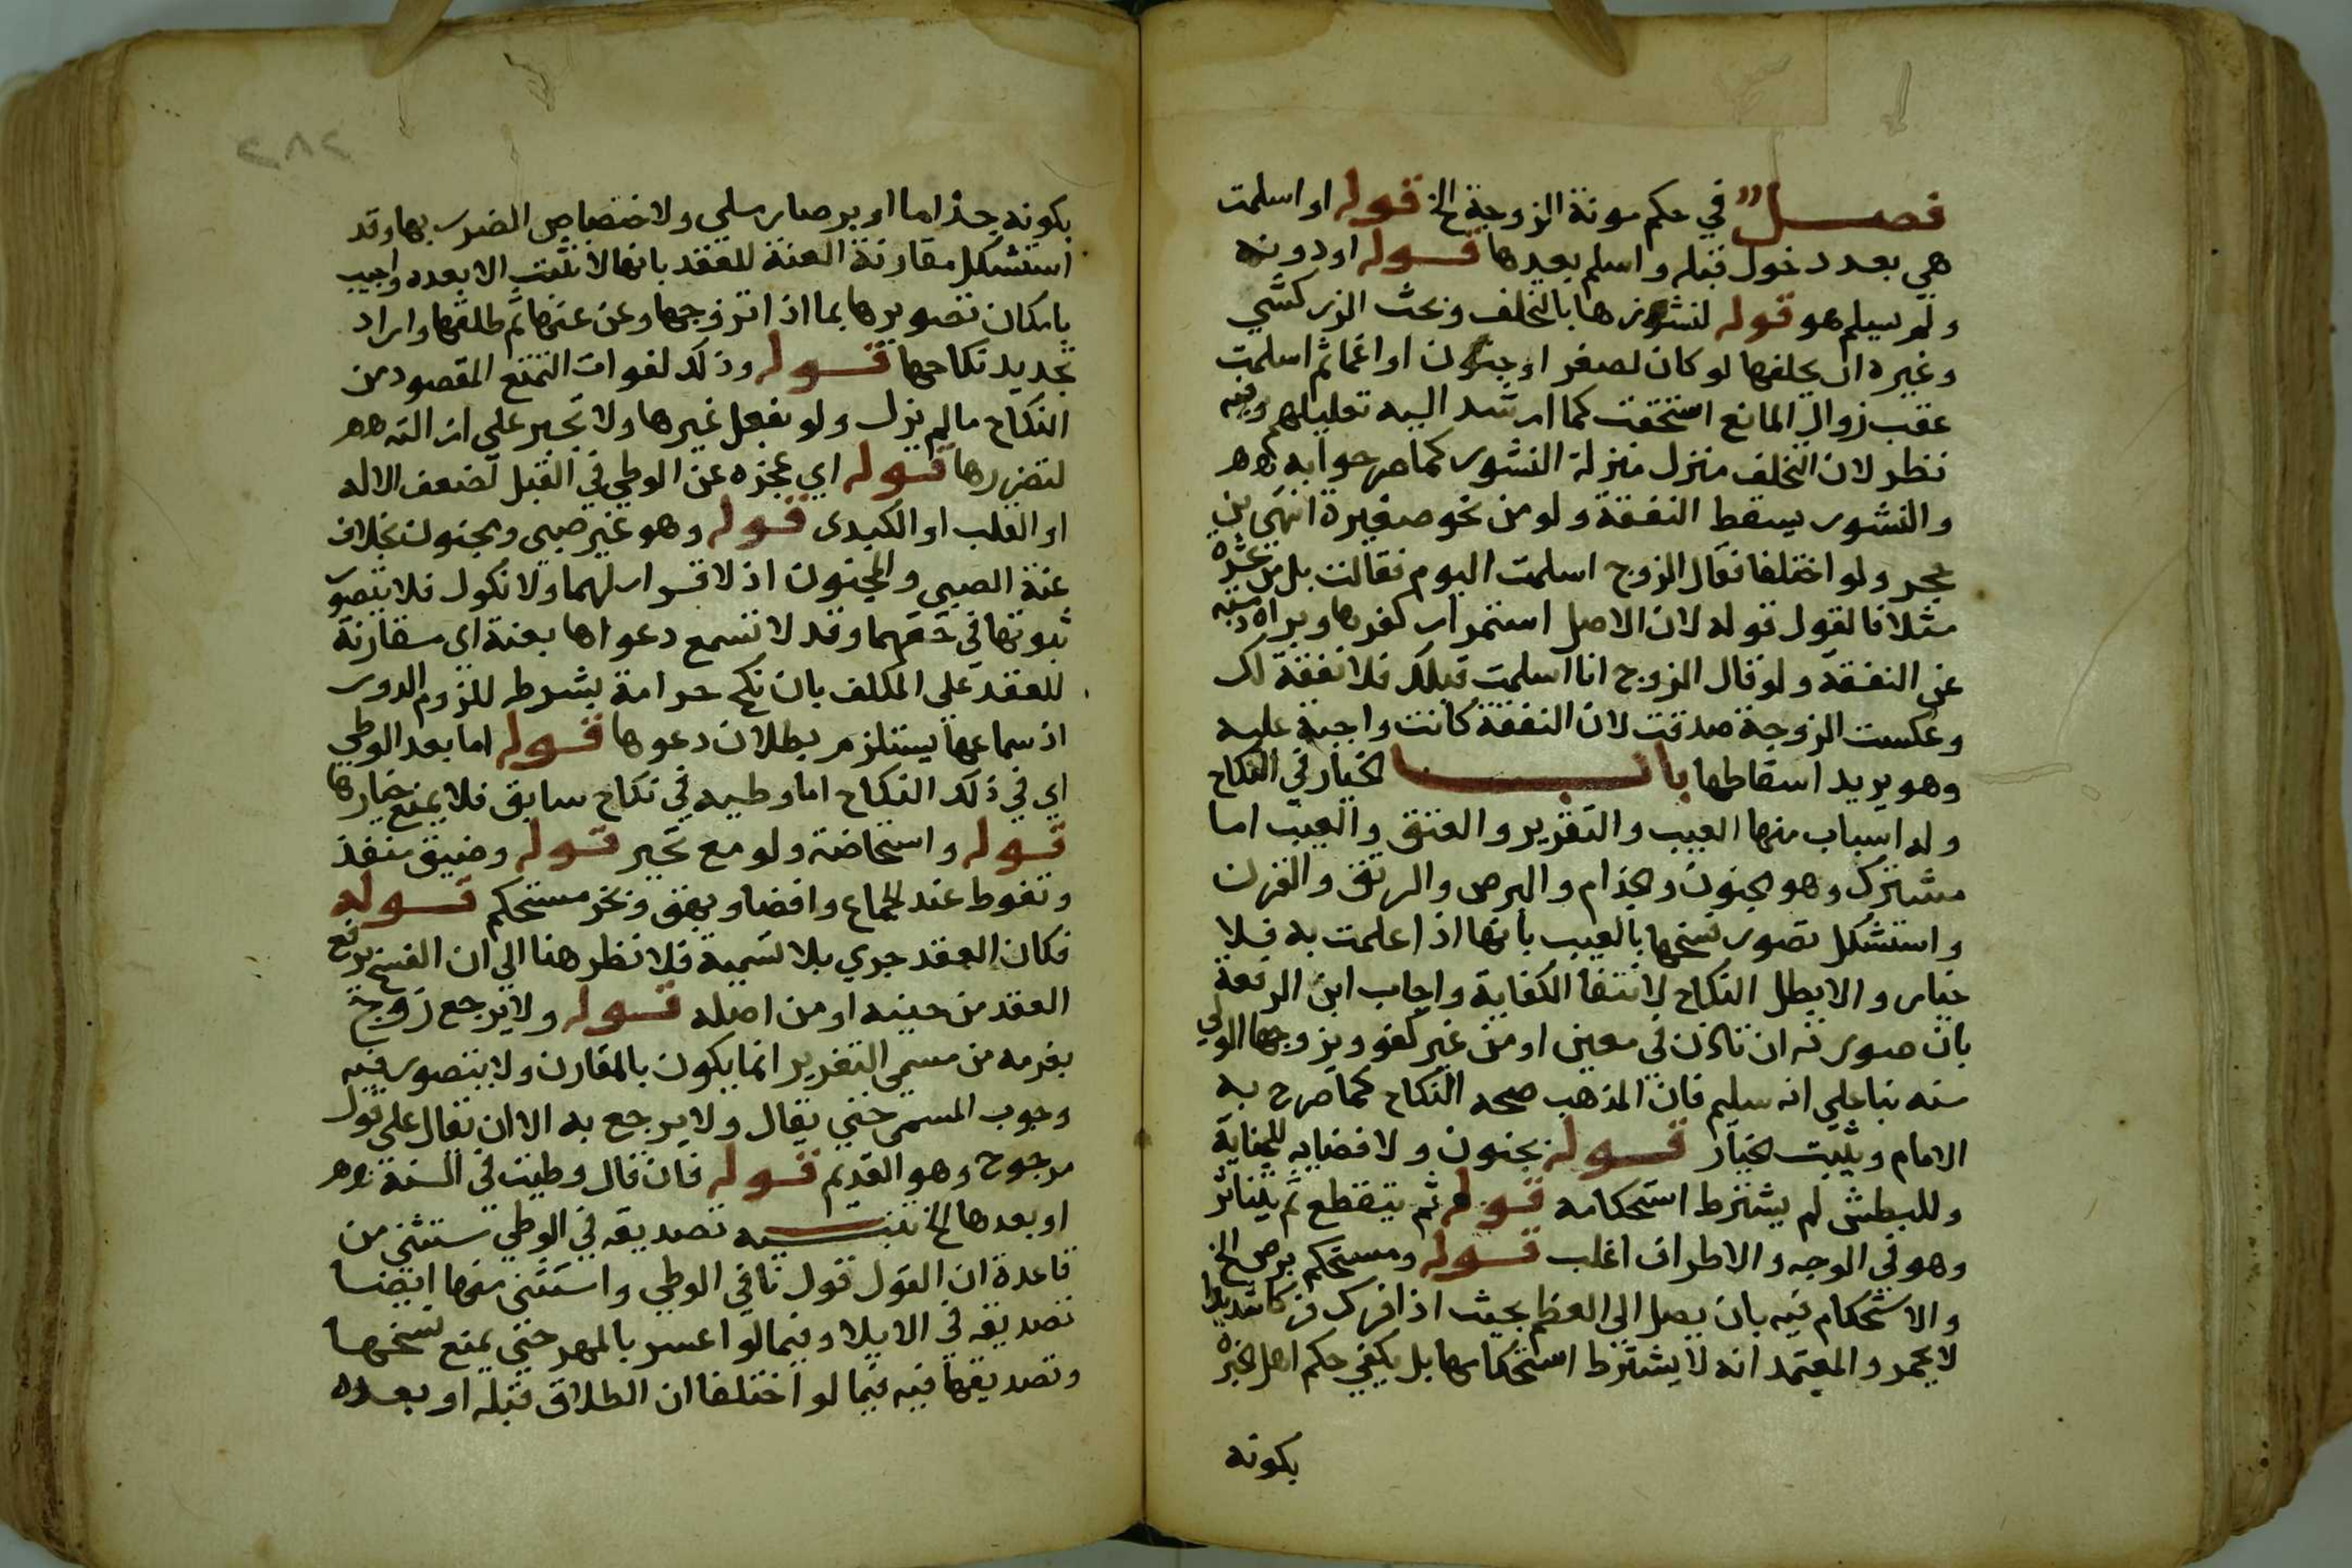 فصل في حكم مونة الزوجة الخ قوله او اسلمت
هي بعد دخول قبله واسلم بعدها قوله او دونه
ولم يسلم هو قوله لنشوزها بالتخلف وبحث الزركشي
وغيره ان تخلفها لو كان لصغر او جنون او اغماثم اسلمت
عقب زوال المانع استحقت كما ارشد اليه تعليلهم وفيه
نظر لان التخلف منزل منزلة النشوز كما صرحوا به
والنشوز يسقط النفقة ولو من نحو صغيرة انتهى بن
حجر ولو اختلفا فقال الزوج اسلمت اليوم فقالت بل من عشرة
مثلا فالقول قوله لان الاصل استمرار كفرها وبراة ذمته
عن النفقة ولو قال الزوج انا اسلمت قبلك فلا نفقة لك
وعكست الزوجة صدقت لان النفقة كانت واجبة عليه
وهو يريد اسقاطها باب الخيار في النكاح
وله اسباب منها العيب والتغرير والعتق والعيب اما
مشترك وهو الجنون والجذام والبرص والرتق والقرن
واستشكل تصور فسخها بالعيب بانها اذا علمت به فلا
خيار والا بطل النكاح لانتفا الكفاية واجاب ابن الرفعة
بان صورته ان تاذن في معين او من غير كفو ويزوجها الولي
منه بنا على انه سليم فان المذهب صحة النكاح كما صرح به
الامام ويثبت الخيار قوله بجنون ولا فضايه للجناية
وللبطش لم يشترط استحكامه قوله ثم يتقطع ثم يتناثر
وهو في الوجه والاطراف اغلب قوله ومستحكم برص الخ
والاستحكام فيه بان يصل الى العظم بحيث اذا فرك فركا شديدا
لا يحمر والمعتمد انه لا يشترط استحكامها بل يكفي حكم اهل الخبرة
بكونه
بكونه جذاما او برصا رملي ولاختصاص الضرر بها وقد
استشكل مقارنة العنة للعقد بانها لا تثبت الا بعده واجيب
بامكان تصويرها بما اذا تزوجها وعن عنها ثم طلقها واراد
تجديد نكاحها قوله وذلك لفوات التمتع المقصود من
النكاح مالم يزل ولو بفعل غيرها ولا تجبر على ازالته
لتضررها قوله اي عجزه عن الوطي في القبل لضعف الاله
او القلب او الكبدى قوله وهو غير صبي ومجنون بخلاف
عنة الصبي والمجنون اذ لا قرار لهما ولا نكول فلا يتصور
ثبوتها في حقهما وقد لا تسمع دعواها بعنة اي مقارنة
للعقد على المكلف بان نكح حر امة بشرطه للزوم الدور
اذ سماعها يستلزم بطلان دعوها قوله اما بعد الوطي
اي في ذلك النكاح اما وطيه في نكاح سابق فلا يمنع خيارها
قوله واستحاضة ولو مع تحير قوله وضيق منفذ
وتغوط عند الجماع وافضا وبهق وبخر مستحكم قوله
فكان العقد جري بلا تسمية فلا نظر هنا الى ان الفسخ يرفع
العقد من حينه او من اصله قوله ولا يرجع زوج
بغرمه من مسمى التغرير انما يكون بالمقارن ولا يتصور فيه
وجوب المسمى حتى يقال ولا يرجع به الا ان نقال على قول
مرجوح وهو القديم قوله فان قال وطيت في السنة
او بعدها الخ تنبيه تصديقه في الوطي ستثني من
قاعدة ان القول قول نافي الوطي واستثني منها ايضا
تصديقه في الايلا وفيما لو اعسر بالمهر حتى يمنع فسخها
وتصديقها فيه فيما لو اختلفا ان الطلاق قبله او بعده